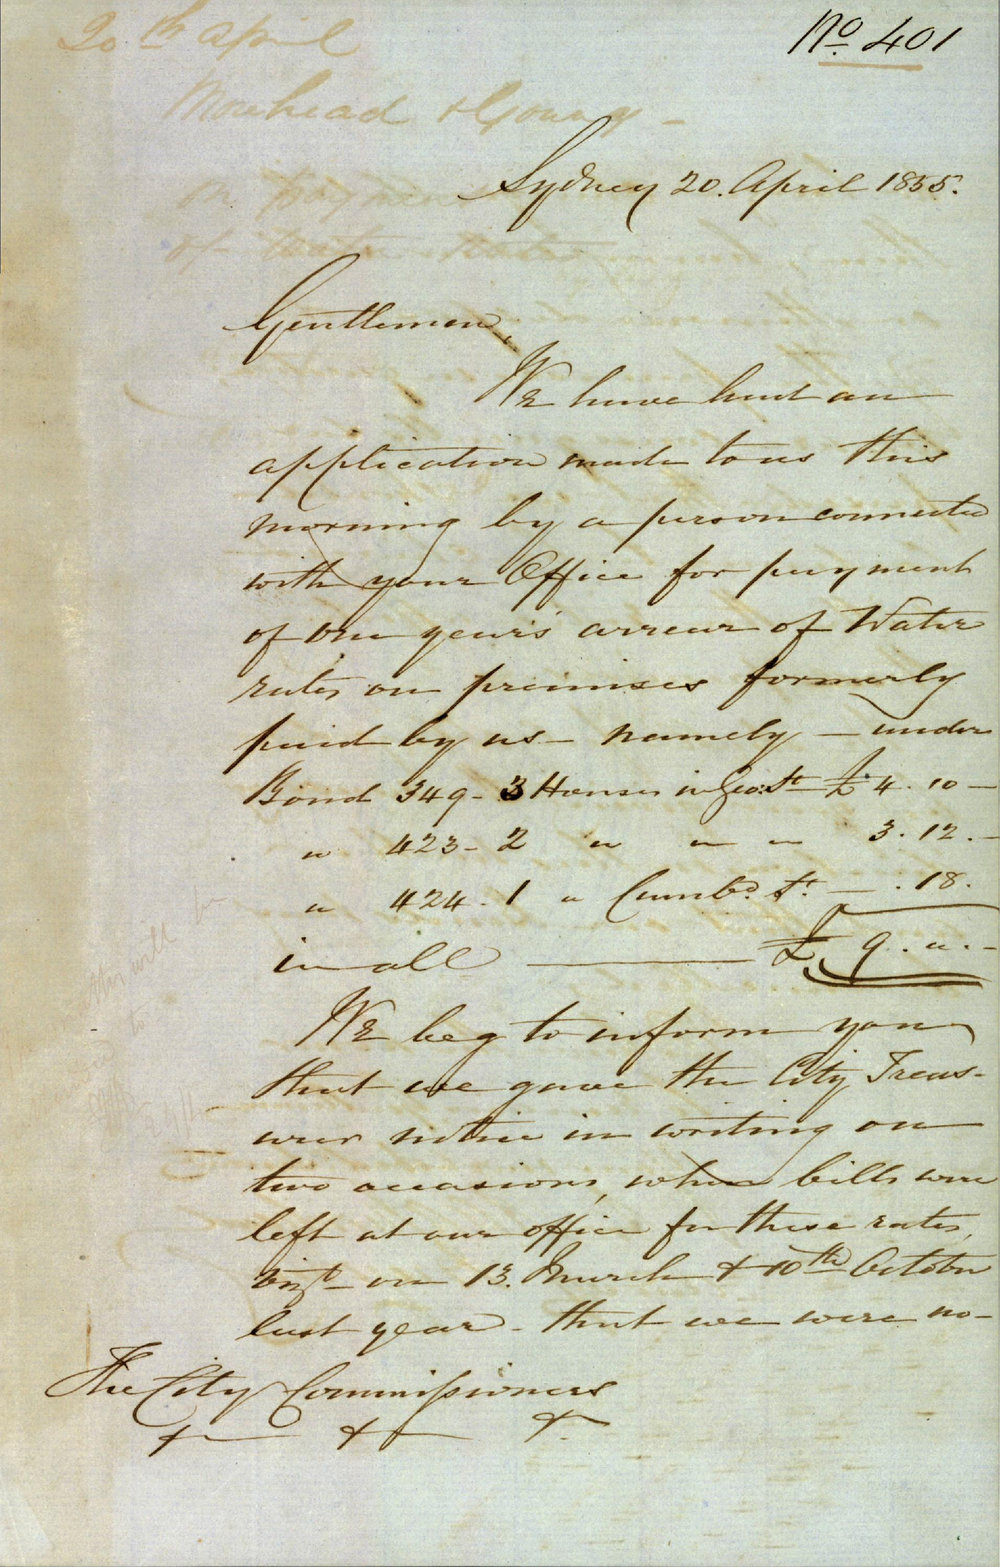 20th April
No. 401
Morehead & Young -
Sydney 20. April 1855.
on payment
of Water Rates
Gentlemen,
We have had an
application made to us this
morning by a person connected
with your Office for payment
of one year's arrear of Water
rates on premises formerly
paid by us - namely - under
Bond 349 - 3 Houses in Geo: St £4. 10 -
" 423 - 2 " " " 3. 12. -
" 424 - 1 " Cumbd. St. - . 18.
in all £ 9. ". -
We beg to inform you
that we gave the City Treas-
urer notice in writing on
two occasions, when bills were
left at our office for these rates,
vizt on 13. March & 10th October
last year - that we were no-
The City Commissioners
&c &c &c